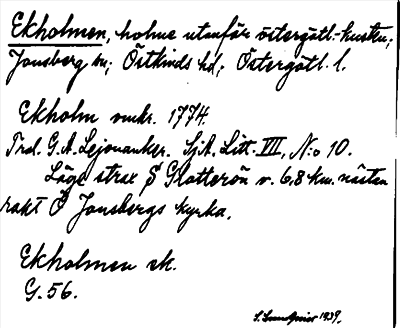 Ekholmen, holme utanför östergötl. kusten;
Jonsberg sn; Östkinds hd; Östergötl. l.
Ekholm omkr. 1774.
Trol. G. A. Lejonanker. SjA. Litt. VII, N:o 10.
Läge strax S Slotterön o. 6,8 km. nästan
rakt Ö Jonsbergs kyrka.
Ekholmen ek.
G. 56.
S. Lundqvist 1939.